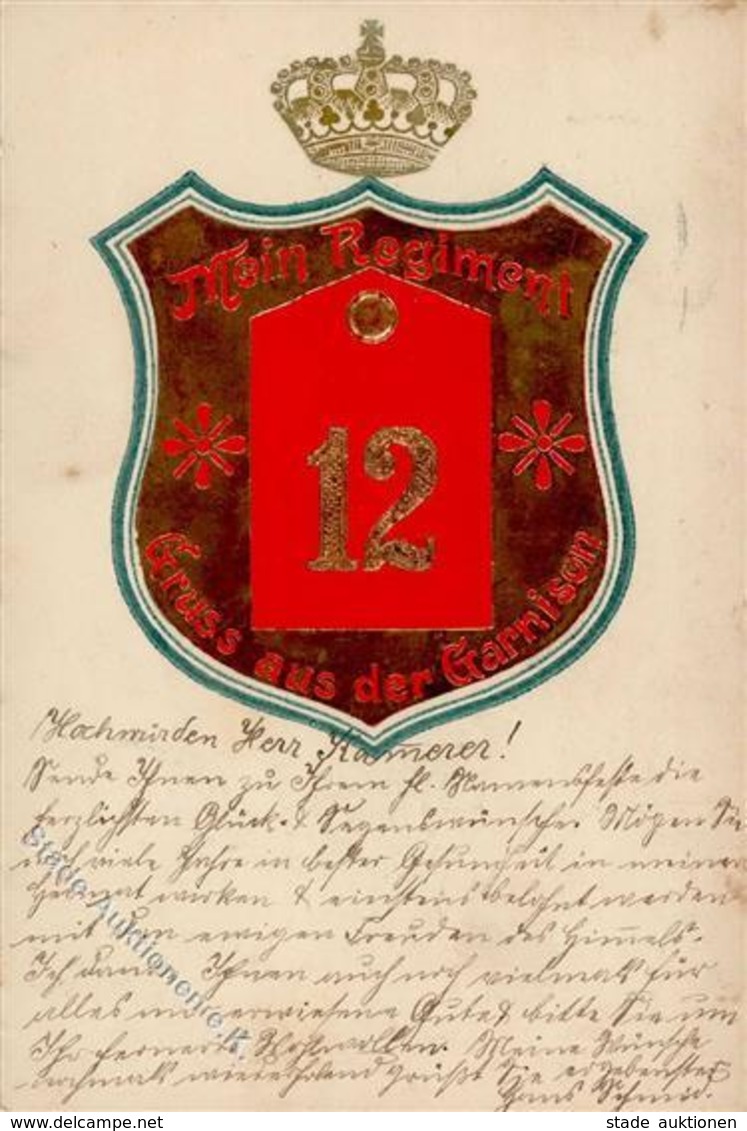 Mein Regiment
12
Gruss aus der Garnison
Hochwürden Herr Kammerer!
Sende Ihnen zu Ihrem hl. Namensfeste die
herzlichsten Glück- & Segenswünsche. Mögen Sie
noch viele Jahre in bester Gesundheit in meiner
Heimat wirken & einstens belohnt werden
mit den ewigen Freuden des Himmels.
Ich danke Ihnen auch noch vielmals für
alles mir erwiesene Gute & bitte Sie um
Ihr ferneres Wohlwollen. Meine Wünsche
nochmals wiederholend grüßt Sie ergebenster
Hans Schmid.
Stade Auktionen e.K.
stade auktionen